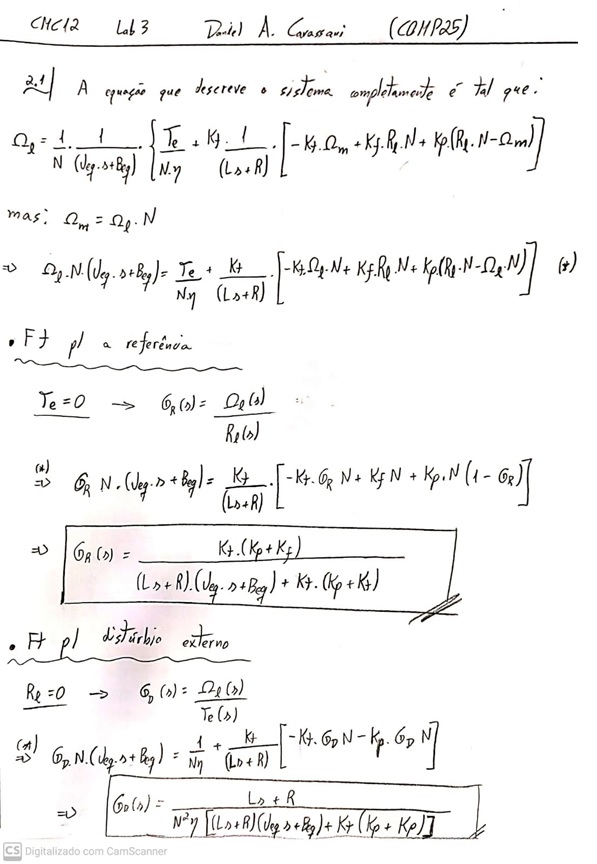 CMC12 Lab 3 Daniel A. Cavassani (COMP25)
2.1 A equação que descreve o sistema completamente é tal que:
Ω_l = 1/N · 1/(Jeq·s+Beq) · { Te/(N·η) + Kt · 1/(Ls+R) · [-Kt·Ω_m + Kf·R_l·N + Kp·(R_l·N-Ω_m)]
mas: Ω_m = Ω_l · N
=> Ω_l·N·(Jeq·s+Beq) = Te/(Nη) + Kt/(Ls+R) · [-Kt·Ω_l·N + Kf·R_l·N + Kp(R_l·N-Ω_l·N)] (*)
• Ft p/ a referência
Te = 0 → G_R(s) = Ω_l(s)/R_l(s)
(*) => G_R N·(Jeq·s+Beq) = Kt/(Ls+R) · [-Kt·G_R N + Kf N + Kp·N(1-G_R)]
=> G_R(s) = Kt·(Kp+Kf)/((Ls+R)·(Jeq·s+Beq) + Kt·(Kp+Kt))
• Ft p/ distúrbio externo
R_l = 0 → G_D(s) = Ω_l(s)/Te(s)
(*) => G_D·N·(Jeq·s+Beq) = 1/(Nη) + Kt/(Ls+R) [-Kt·G_D N - Kp·G_D N]
=> G_D(s) = Ls+R/(N²η[(Ls+R)(Jeq s+Beq) + Kt(Kp+Kp)])
CS Digitalizado com CamScanner